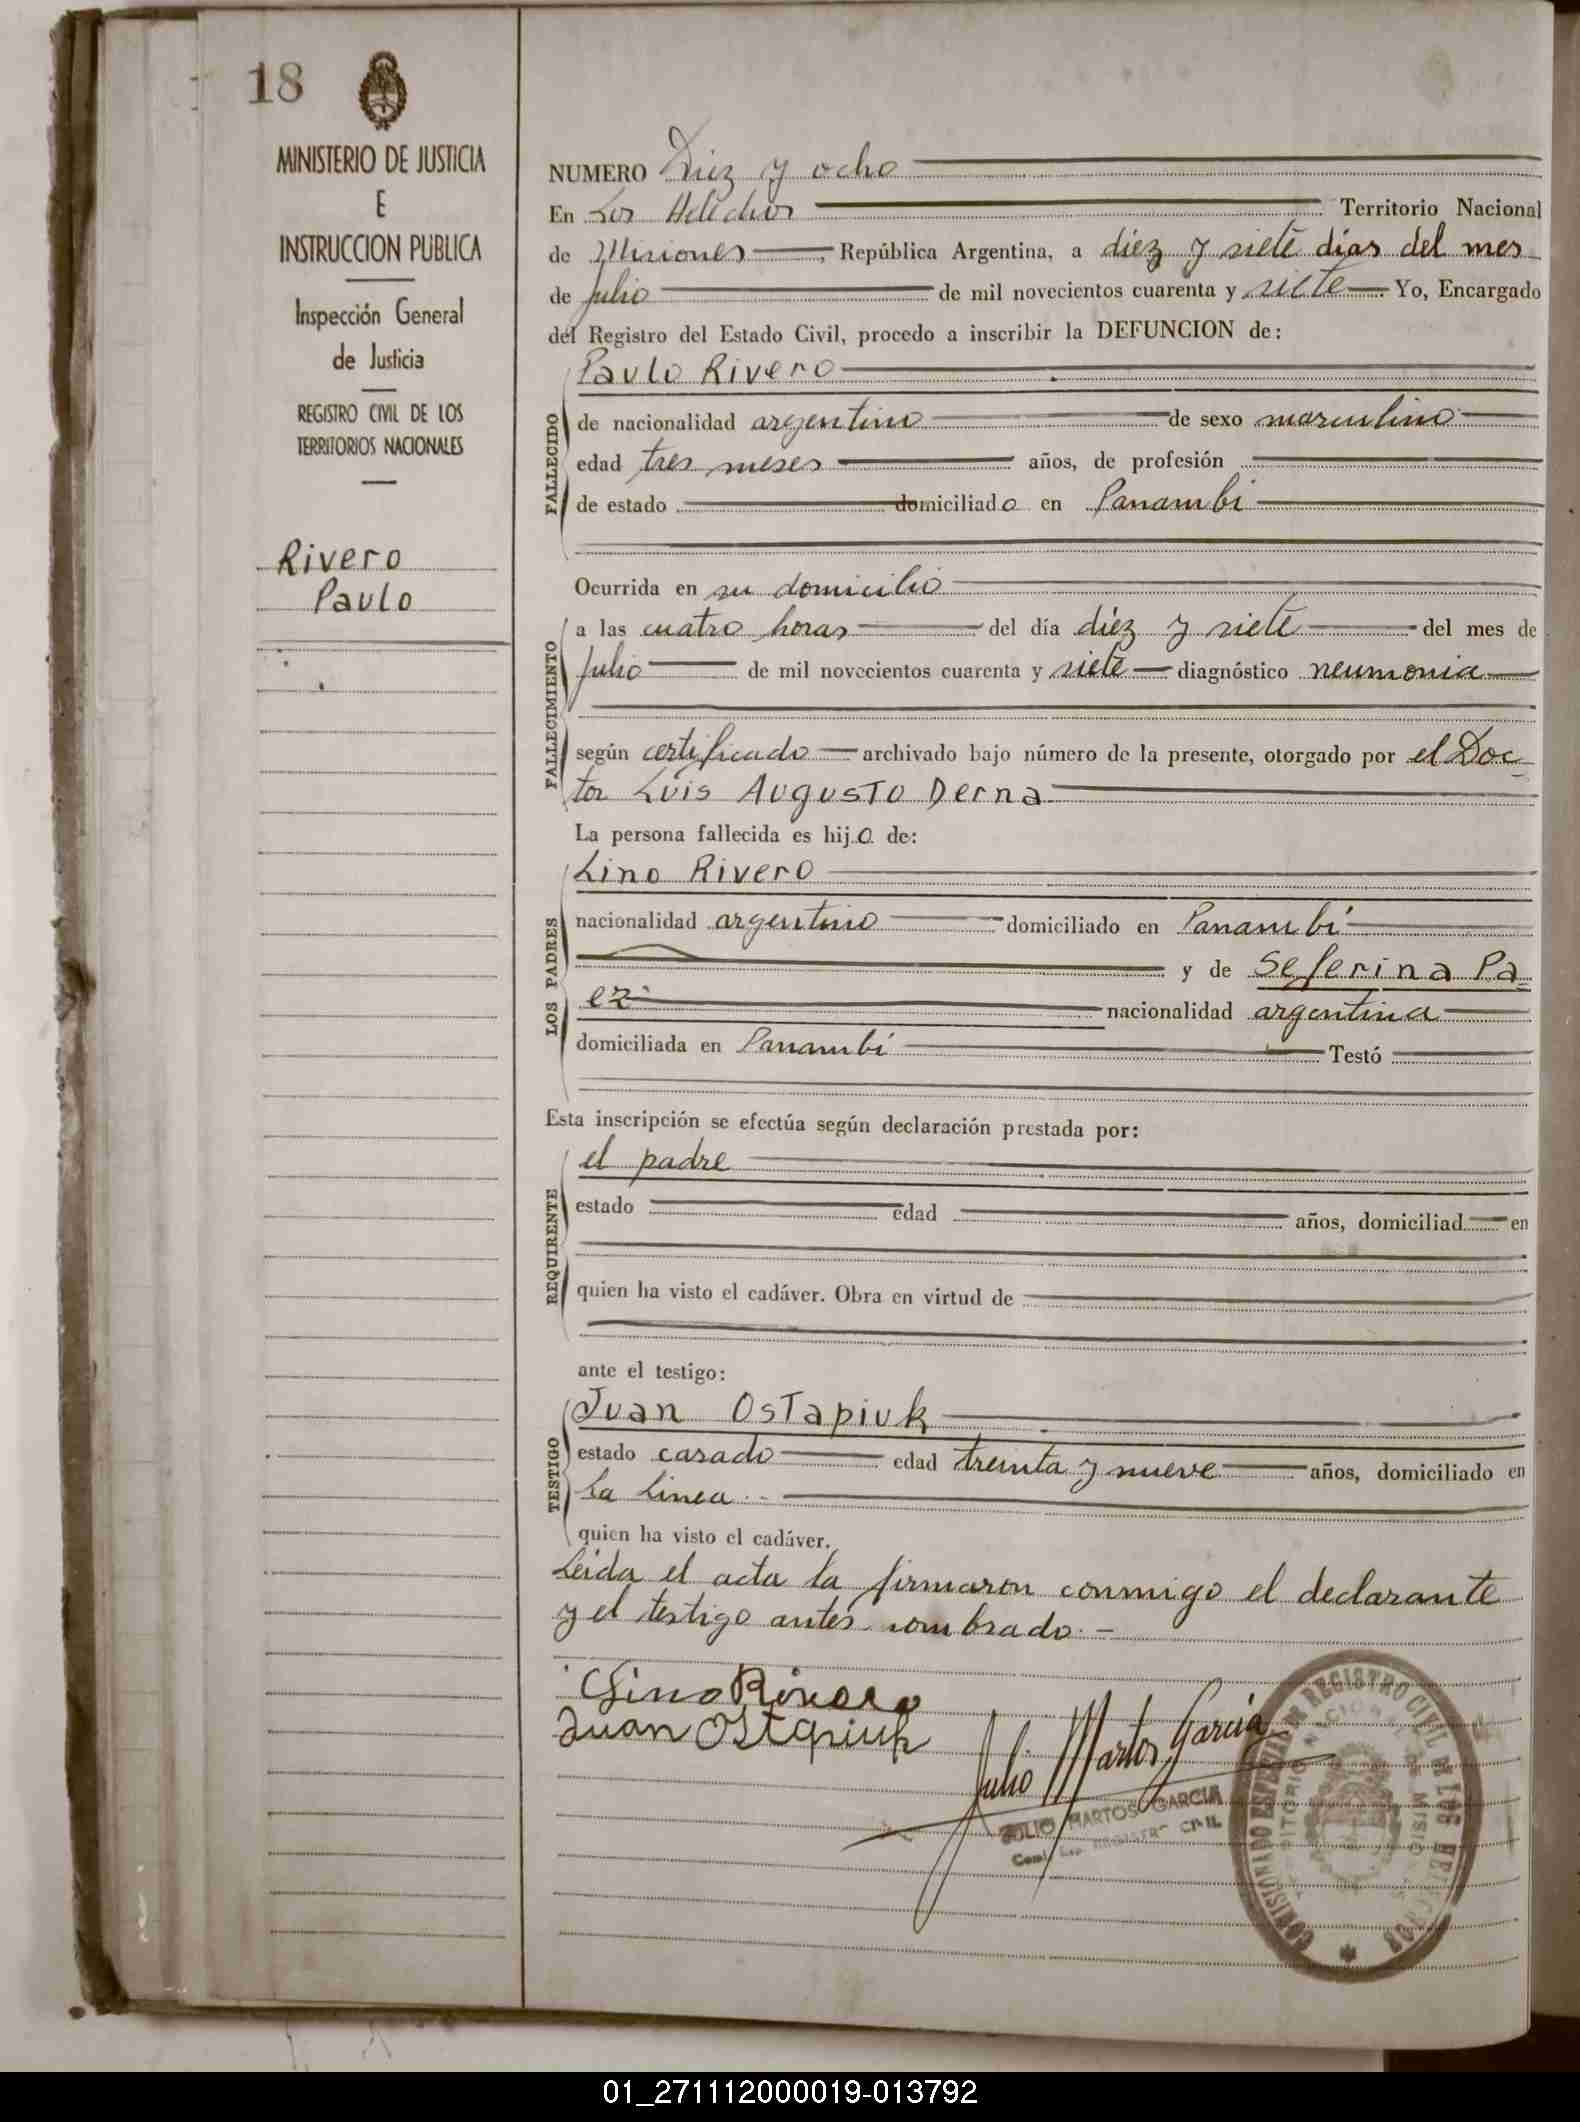 18
MINISTERIO DE JUSTICIA
E
INSTRUCCION PUBLICA
Inspección General
de Justicia
REGISTRO CIVIL DE LOS
TERRITORIOS NACIONALES
Rivero
Paulo
NUMERO Diez y ocho
En Los Helechos Territorio Nacional
de Misiones, República Argentina, a diez y siete días del mes
de julio de mil novecientos cuarenta y siete Yo, Encargado
del Registro del Estado Civil, procedo a inscribir la DEFUNCION de:
FALLECIDO
Paulo Rivero
de nacionalidad argentino de sexo masculino
edad tres meses años, de profesión
de estado domiciliado en Panambí
Ocurrida en su domicilio
FALLECIMIENTO
a las cuatro horas del día diez y siete del mes de
julio de mil novecientos cuarenta y siete diagnóstico neumonia
según certificado archivado bajo número de la presente, otorgado por el Doc-
tor Luis Augusto Derna
La persona fallecida es hijo de:
LOS PADRES
Lino Rivero
nacionalidad argentino domiciliado en Panambí
y de Seferina Pa=
ez nacionalidad argentina
domiciliada en Panambí Testó
Esta inscripción se efectúa según declaración prestada por:
REQUIRENTE
el padre
estado edad años, domiciliad en
quien ha visto el cadáver. Obra en virtud de
ante el testigo:
TESTIGO
Juan Ostapiuk
estado casado edad treinta y nueve años, domiciliado en
La Linea
quien ha visto el cadáver.
Leida el acta la firmaron conmigo el declarante
y el testigo antes nombrado.-
Lino Rivero
Juan Ostapiuk
Julio Martos Garcia
JULIO MARTOS GARCIA
REGISTRO CIVIL
COMISIONADO ESCOLAR REGISTRO CIVIL DE LOS HELECHOS
TERRITORIO NACIONAL DE MISIONES
01_271112000019-013792